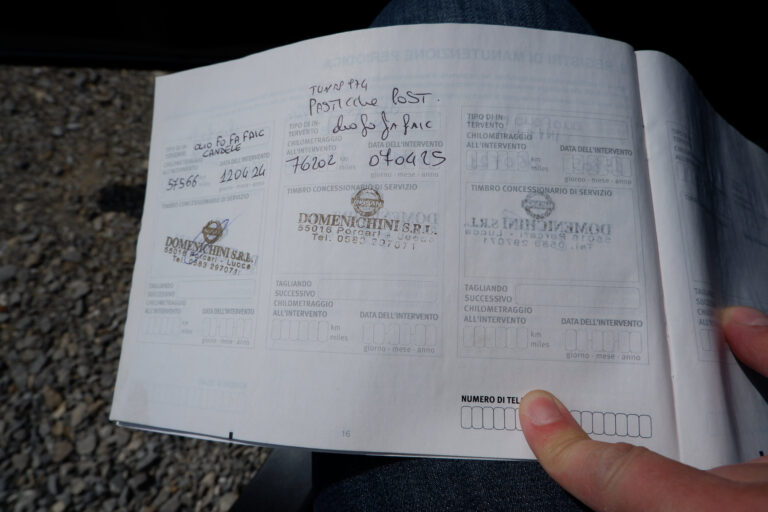 TIPO DI IN-
TERVENTO OLIO FO FA FAIC
CANDELE
CHILOMETRAGGIO
ALL'INTERVENTO
DATA DELL'INTERVENTO
57566 km
miles
120424
giorno - mese - anno
TIMBRO CONCESSIONARIO DI SERVIZIO
NISSAN
DOMENICHINI S.R.L.
55016 Porcari - Lucca
Tel. 0583 297071
TAGLIANDO
SUCCESSIVO
CHILOMETRAGGIO
ALL'INTERVENTO
km
miles
DATA DELL'INTERVENTO
giorno - mese - anno
PASTICCHE POST.
TIPO DI IN-
TERVENTO OLIO FO FA FAIC
CHILOMETRAGGIO
ALL'INTERVENTO
DATA DELL'INTERVENTO
76202 km
miles
070425
giorno - mese - anno
TIMBRO CONCESSIONARIO DI SERVIZIO
NISSAN
DOMENICHINI S.R.L.
55016 Porcari - Lucca
Tel. 0583 297071
TAGLIANDO
SUCCESSIVO
CHILOMETRAGGIO
ALL'INTERVENTO
km
miles
DATA DELL'INTERVENTO
giorno - mese - anno
TIPO DI IN-
TERVENTO
CHILOMETRAGGIO
ALL'INTERVENTO
km
miles
DATA DELL'INTERVENTO
giorno - mese - anno
TIMBRO CONCESSIONARIO DI SERVIZIO
TAGLIANDO
SUCCESSIVO
CHILOMETRAGGIO
ALL'INTERVENTO
km
miles
DATA DELL'INTERVENTO
giorno - mese - anno
NUMERO DI TEL
16